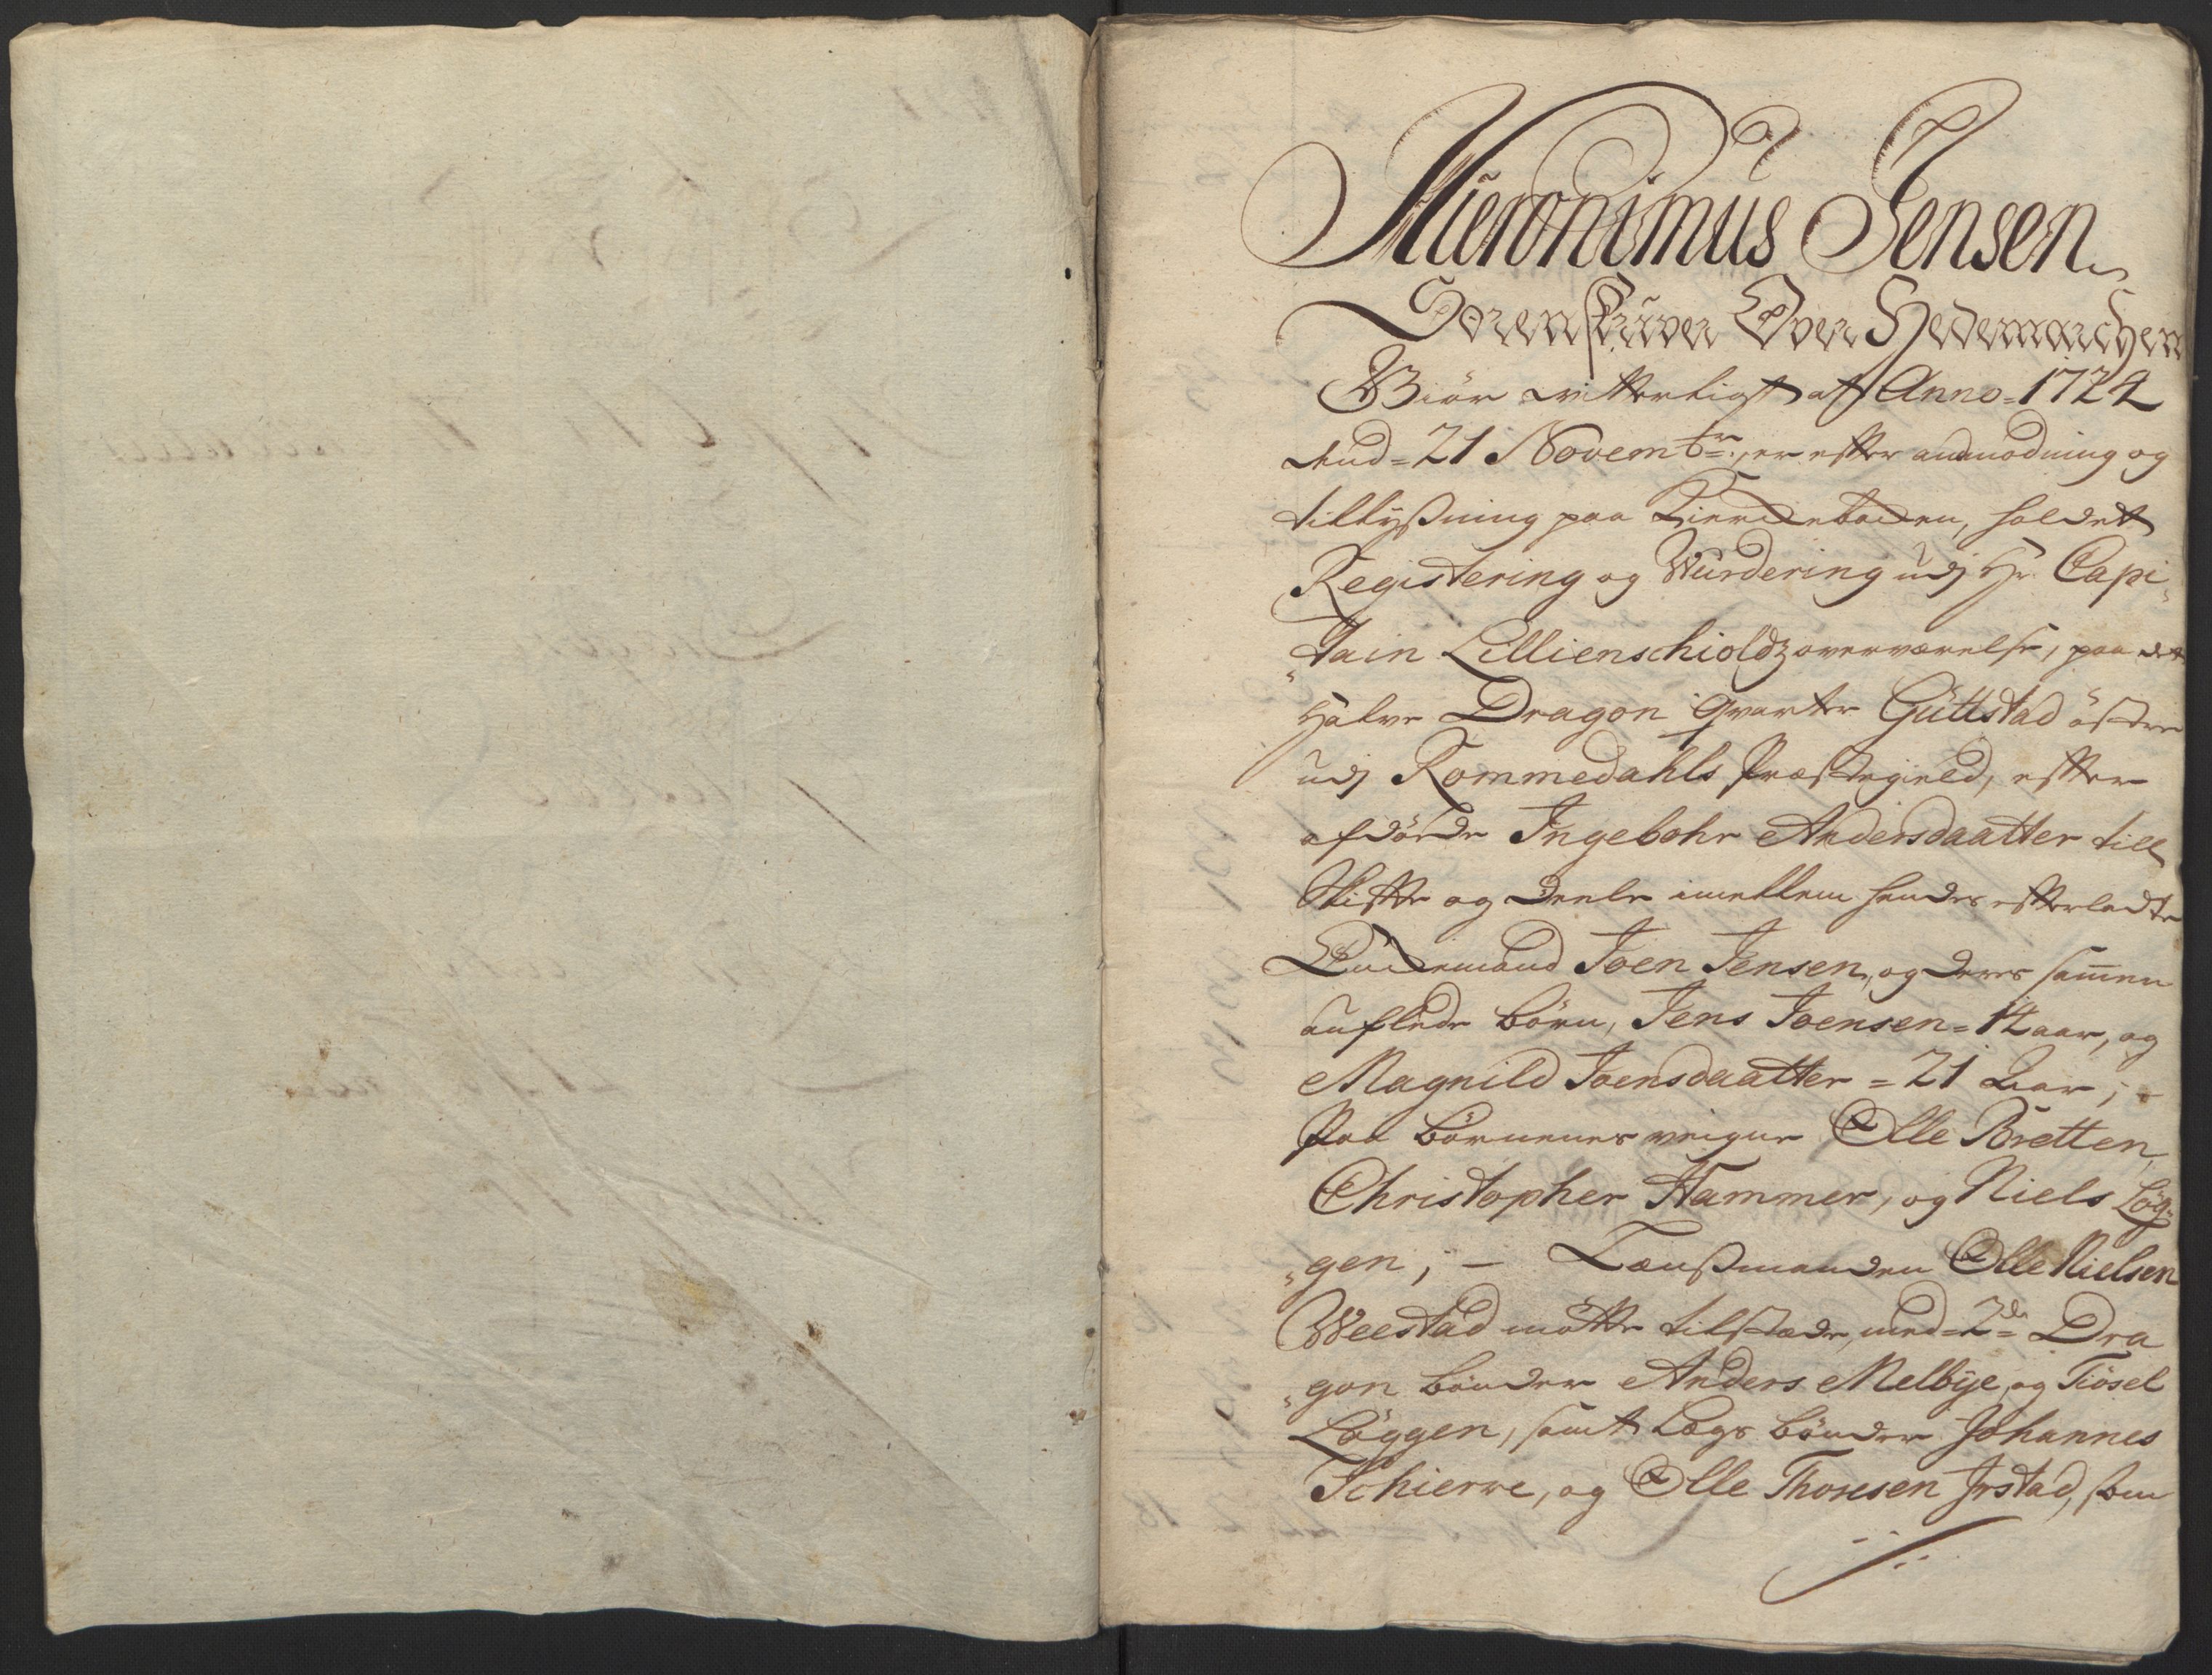 Hieronimus Jensen
Sorenskriver Over Hedemarchen
Giör vitterligt at Anno 1724
dend 21 Novembr: er efter anmodning og
tillysning paa Kierchebachen, holdet
Registering og Wurdering udj Hr. Capi-
tain Lillienschioldz overværelse, paa det
halve Dragon qvarter Guttstad östre
udj Rommedahls Præstegield, efter
afdöde Ingebohr Andersdaatter till
Skifte og Deele imellem hendes efterladte
Enckemand Joen Jensen, og deres sammen
auflede börn, Jens Joensen = 12 aar, og
Magnild Joensdaatter = 21 aar; -
Paa börnenes veigne Olle Bretten,
Christopher Hammer, og Niels Lög-
gen; - Lænsmanden Olle Nielsen
Weestad mötte tilstæde, med 2de Dra
gon bönder Anders Melbye, og Tiösel
Löggen, samt Lægs bönder Johannes
Schierre, og Olle Thoresen Irstad, som